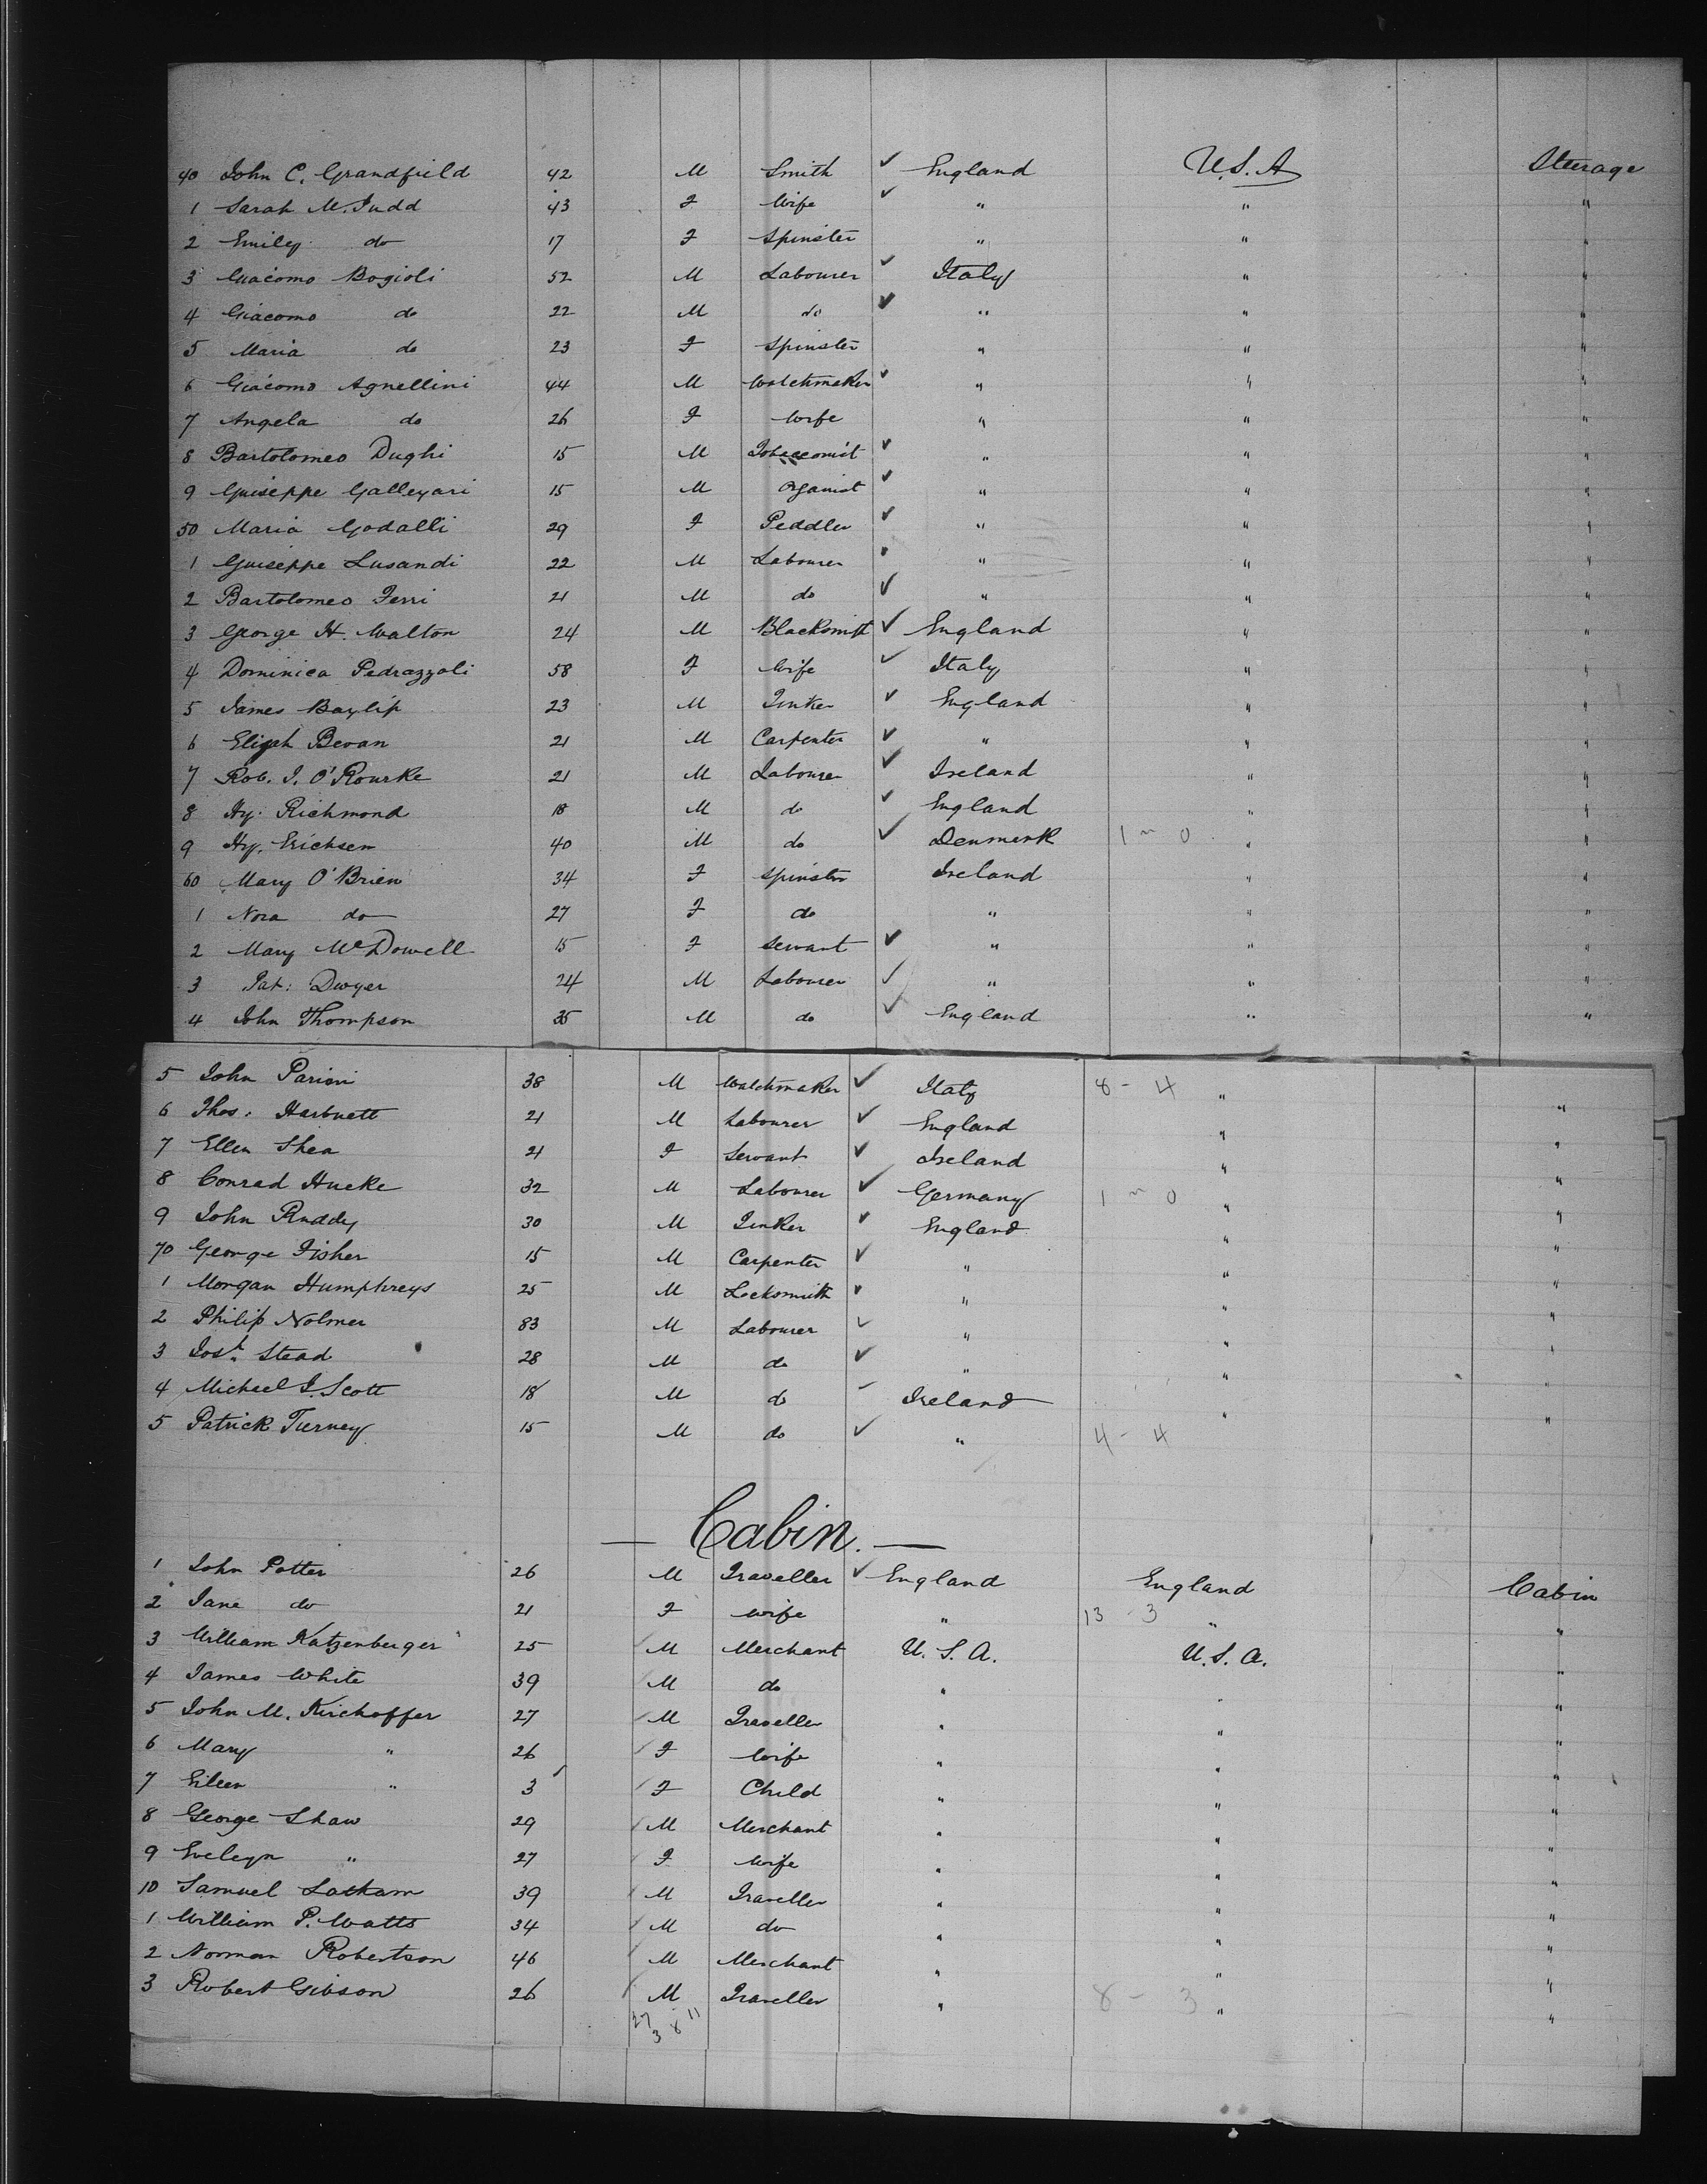 40 John C. Grandfield 42 M Smith ✓ England U.S.A Steerage
1 Sarah M. Judd 43 F Wife ✓ " " "
2 Emily do 17 F Spinster " " "
3 Giacomo Bogioli 52 M Labourer ✓ Italy " "
4 Giacomo do 22 M do ✓ " " "
5 Maria do 23 F Spinster " " "
6 Giacomo Agnellini 44 M Watchmaker ✓ " " "
7 Angela do 26 F Wife " " "
8 Bartolomeo Dughi 15 M Tobacconist ✓ " " "
9 Guiseppe Galleyari 15 M Organist ✓ " " "
50 Maria Godalli 29 F Peddler ✓ " " "
1 Guiseppe Lusandi 22 M Labourer ✓ " " "
2 Bartolomeo Ferri 21 M do ✓ " " "
3 George H. Walton 24 M Blacksmith ✓ England " "
4 Dominica Pedrazzoli 58 F Wife ✓ Italy " "
5 James Baylip 23 M Tinker ✓ England " "
6 Elijah Bevan 21 M Carpenter ✓ " " "
7 Rob. J. O'Rourke 21 M Labourer ✓ Ireland " "
8 Hy. Richmond 18 M do ✓ England " "
9 Hy. Erichsen 40 M do ✓ Denmark 1 ~ 0 " "
60 Mary O'Brien 34 F Spinster Ireland " "
1 Nora do 27 F do " " "
2 Mary McDowell 15 F Servant ✓ " " "
3 Pat: Dwyer 24 M Labourer ✓ " " "
4 John Thompson 35 M do ✓ England " "
5 John Parini 38 M Watchmaker ✓ Italy 8 - 4 " "
6 Thos. Harbnett 21 M Labourer ✓ England " "
7 Ellen Shea 21 F Servant ✓ Ireland " "
8 Conrad Hucke 32 M Labourer ✓ Germany 1 ~ 0 " "
9 John Ruddy 30 M Tinker ✓ England " "
70 George Fisher 15 M Carpenter ✓ " " "
1 Morgan Humphreys 25 M Locksmith ✓ " " "
2 Philip Nolmer 83 M Labourer ✓ " " "
3 Josh. Stead 28 M do ✓ " " "
4 Michael J. Scott 18 M do Ireland " "
5 Patrick Tierney 15 M do ✓ " 4 - 4
— Cabin. —
1 John Potter 26 M Traveller ✓ England England Cabin
2 Jane do 21 F Wife " 13 - 3 " "
3 William Katzenberger 25 M Merchant U.S.A. U.S.A. "
4 James White 39 M do " " "
5 John M. Kirchoffer 27 M Traveller " " "
6 Mary " 26 F Wife " " "
7 Eileen " 3 F Child " " "
8 George Shaw 29 M Merchant " " "
9 Evelyn " 27 F Wife " " "
10 Samuel Latham 39 M Traveller " " "
1 William P. Watts 34 M do " " "
2 Norman Robertson 46 M Merchant " " "
3 Robert Gibson 26 M Traveller " 8 - 3 " "
27 3 8 11